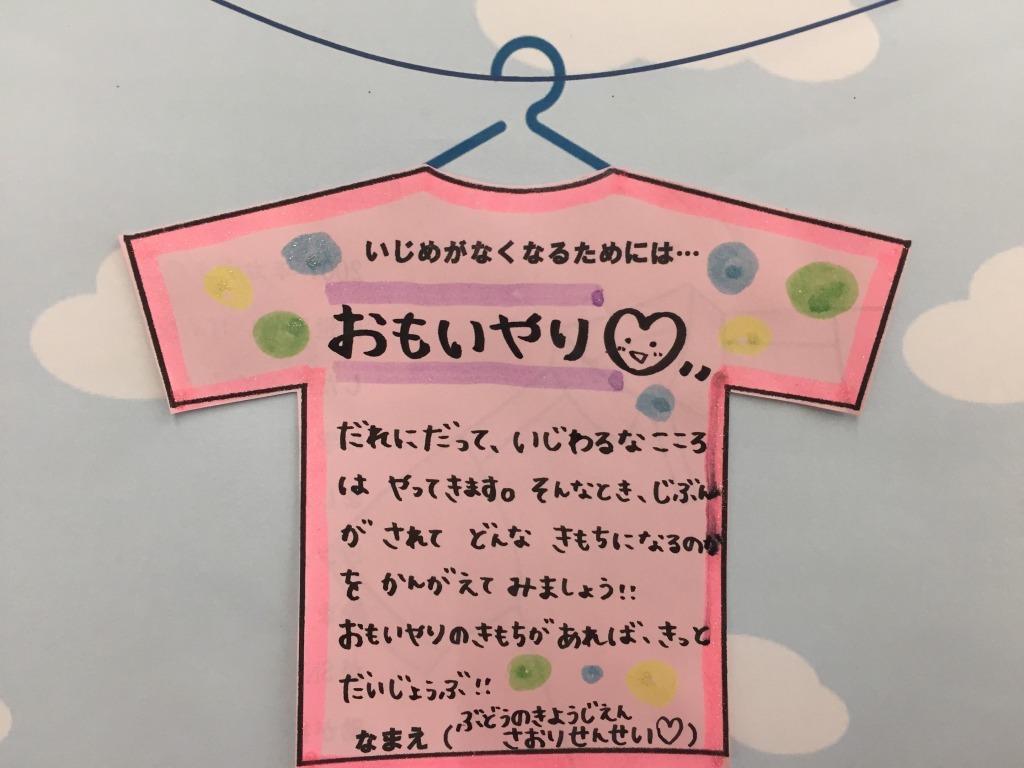 いじめがなくなるためには…
おもいやり♡
だれにだって、いじわるなこころ
は やってきます。そんなとき、じぶん
が されて どんな きもちになるのか
を かんがえて みましょう!!
おもいやりのきもちが あれば、きっと
だいじょうぶ!!
なまえ(ぶどうのきようじえん
さおりせんせい♡)